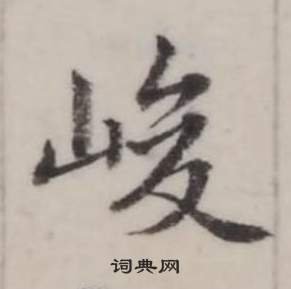 峻
词典网